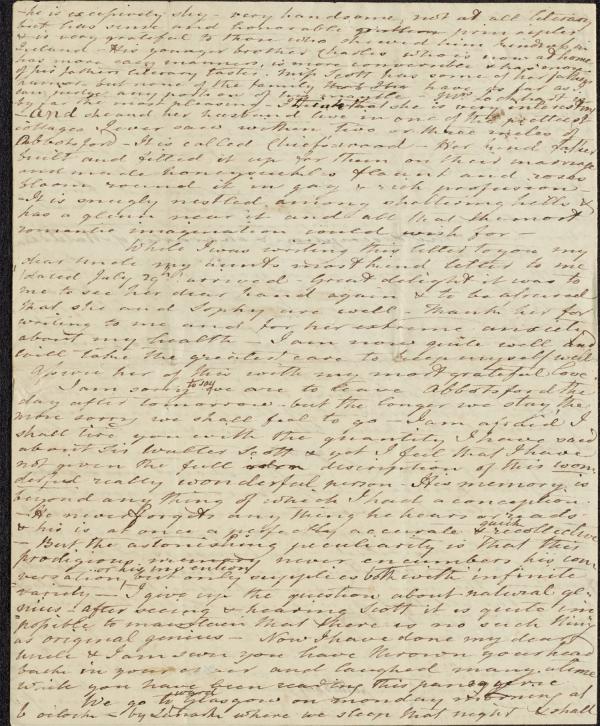 He is excessively shy very handsome, not at all literary
& has sense and honorable gentleman principles
& is very grateful to those who shewed him kindness in
Ireland. His younger brother Charles who is now at home
has more easy manners, is more conversible & has more
of his father's literary taste. Miss Scott has some of her father's
humor but none of the family have as far as I
can judge any portion of his Mrs Lockhart is
by far the most pleasing. I think that she is very interesting
— and she and her husband live in one of the prettiest
cottages I ever saw within two or three miles of
Abbotsford — It is called Chiefswood — Her kind father
built and fitted it up for them on their marriage
and made honeysuckles flaunt and roses
bloom round it in gay & rich profusion —
It is snugly nestled among sheltering hills &
has a glenn near it and all that the most
romantic imagination could wish for —
While I was writing this letter to you my
dear uncle my aunts most kind letter to me
(dated July 29th) arrived. Great delight it was to
me to see her dear hand again & to be assured
that she and Sophy are well — Thank her for
writing to me and for her extreme anxiety
about my health — I am now quite well and
will take the greatest care to keep myself well
Assure her of this with my most grateful love.
I am sorry to say we are to leave Abbotsford the
day after tomorrow — but the longer we stay the
more sorry we shall feel to go — I am afraid I
shall tire you with the quantity I have said
about Sir Walter Scott & yet I feel that I have
not given the full description of this won
derful really wonderful person His memory is
beyond any thing of which I had a conception
— He never forgets any thing he hears or reads
& his is at once a perfectly accurate & quick recollective
— But the astonishing peculiarity is that this
prodigious memory never encumbers his con
versation, or his invention but only supplies both with infinite
variety — I give up the question about natural ge-
nius — after seeing & hearing Scott it is quite im
possible to maintain that there is no such thing
as original genius — Now I have done my dear
uncle & I am sure you have thrown your head
back in your chair and laughed many a time
while you have been reading this panegyric
We go toward Glasgow on monday morning at
6 oclock — by Lanark where we sleep that night & shall